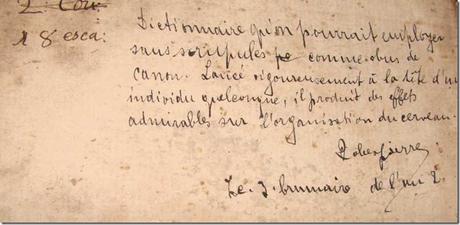 2. Cou.
1 8 esca:
Dictionnaire qu'on pourrait employer
sans scrupules pe comme obus de
canon. Lancé rigoureusement à la tête d'un
individu quelconque, il produit des effets
admirables sur l'organisation du cerveau.
Robespierre
Le 3. brumaire de l'an 2.